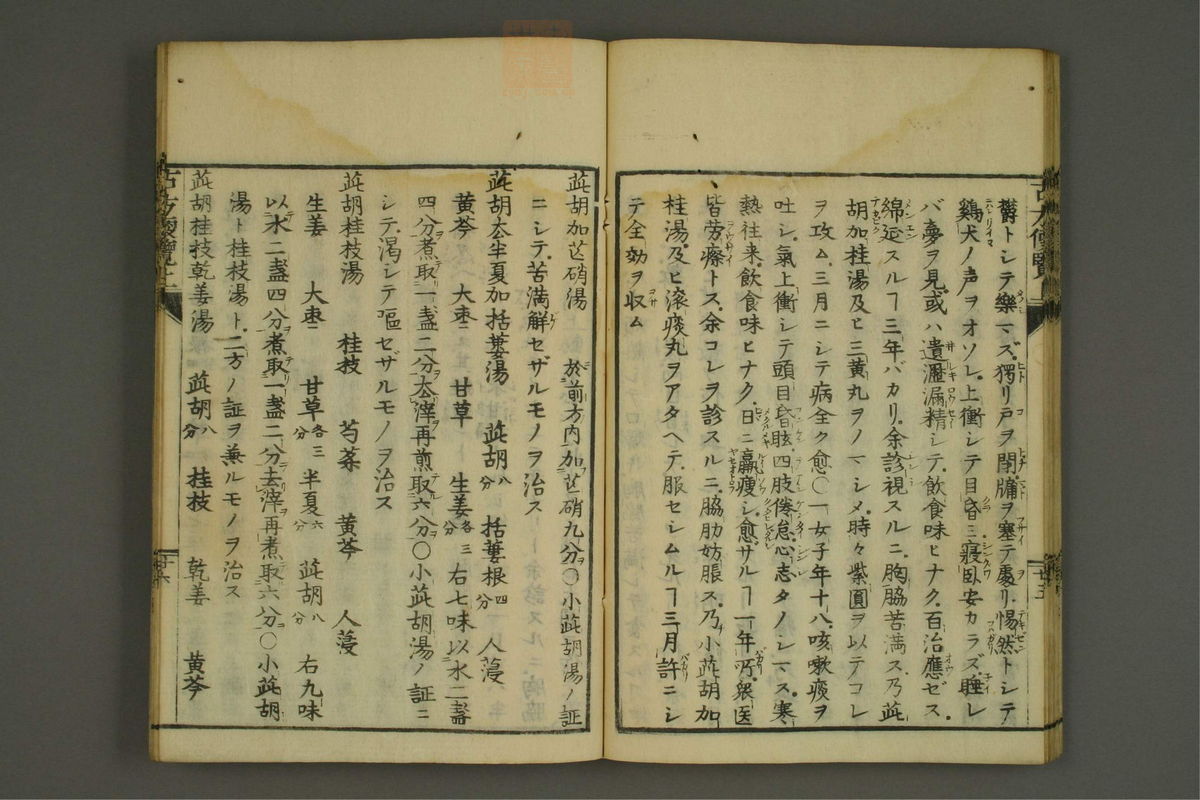 欝トシテ樂マズ獨リ戸ヲ閉牖ヲ塞テ處リ惕然トシテ
鷄犬ノ声ヲオソレ上衝シテ目昏ミ寢臥安カラズ睡レ
バ夢ヲ見或ハ遺瀝漏精シテ飲食味ヒナク百治應ゼス
綿延スルヿ三年バカリ余診視スルニ胸脇苦満ス乃茈
胡加桂湯及ヒ三黄丸ヲノマシメ時々紫圓ヲ以テコレ
ヲ攻ム三月ニシテ病全ク愈〇一女子年十八咳嗽痰ヲ
吐シ氣上衝シテ頭目昏眩四肢倦怠心志タノシマス寒
熱往来飲食味ヒナク日ニ羸瘦シ愈サルヿ一年所衆医
皆労瘵トス余コレヲ診スルニ脇肋妨脹ス乃小茈胡加
桂湯及ヒ滚痰丸ヲアタヘテ服セシムルヿ三月許ニシ
テ全効ヲ収ム
茈胡加芒硝湯 於前方内加芒硝九分〇小茈胡湯ノ証
ニシテ苦満解セザルモノヲ治ス
茈胡去半夏加括蔞湯 茈胡八分 括蔞根四分 人蓡
黄芩 大棗二 甘草 生姜各三分 右七味以水二盞
四分煮取一盞二分去滓再煎取六分〇小茈胡湯ノ証ニ
シテ渇シテ嘔セザルモノヲ治ス
茈胡桂枝湯 桂枝 芍薬 黄芩 人蓡
生姜 大棗二 甘草各三分 半夏六分 茈胡八分 右九味
以水二盞四分煮取一盞二分去滓再煮取六分〇小茈胡
湯ト桂枝湯ト二方ノ証ヲ兼ルモノヲ治ス
茈胡桂枝乾姜湯 茈胡八分 桂枝 乾姜 黄芩